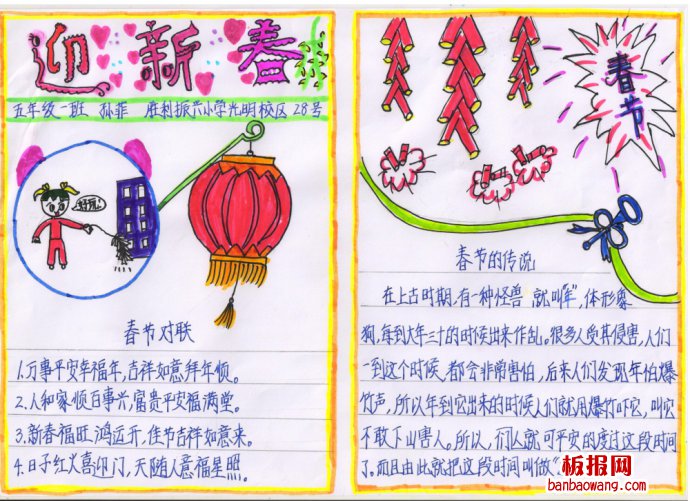 迎新春
五年级一班 孙菲 胜利振兴小学光明校区 28号
好玩!
春节对联
1.万事平安幸福年,吉祥如意拜年顺。
2.人和家顺百事兴,富贵平安福满堂。
3.新春福旺鸿运开,佳节吉祥如意来。
4.日子红火喜迎门,天随人意福星照。
春节
春节的传说
在上古时期,有一种怪兽 就叫"年",体形像
狗,每到大年三十的时候出来作乱。很多人受其侵害,人们
一到这个时候,都会非常害怕,后来人们发现年怕爆
竹声,所以年到它出来的时候人们就用爆竹吓它,叫它
不敢下山害人。所以,们么就可平安的度过这段时间
了。而且由此就把这段时间叫做"
板报网
banbaowang.com